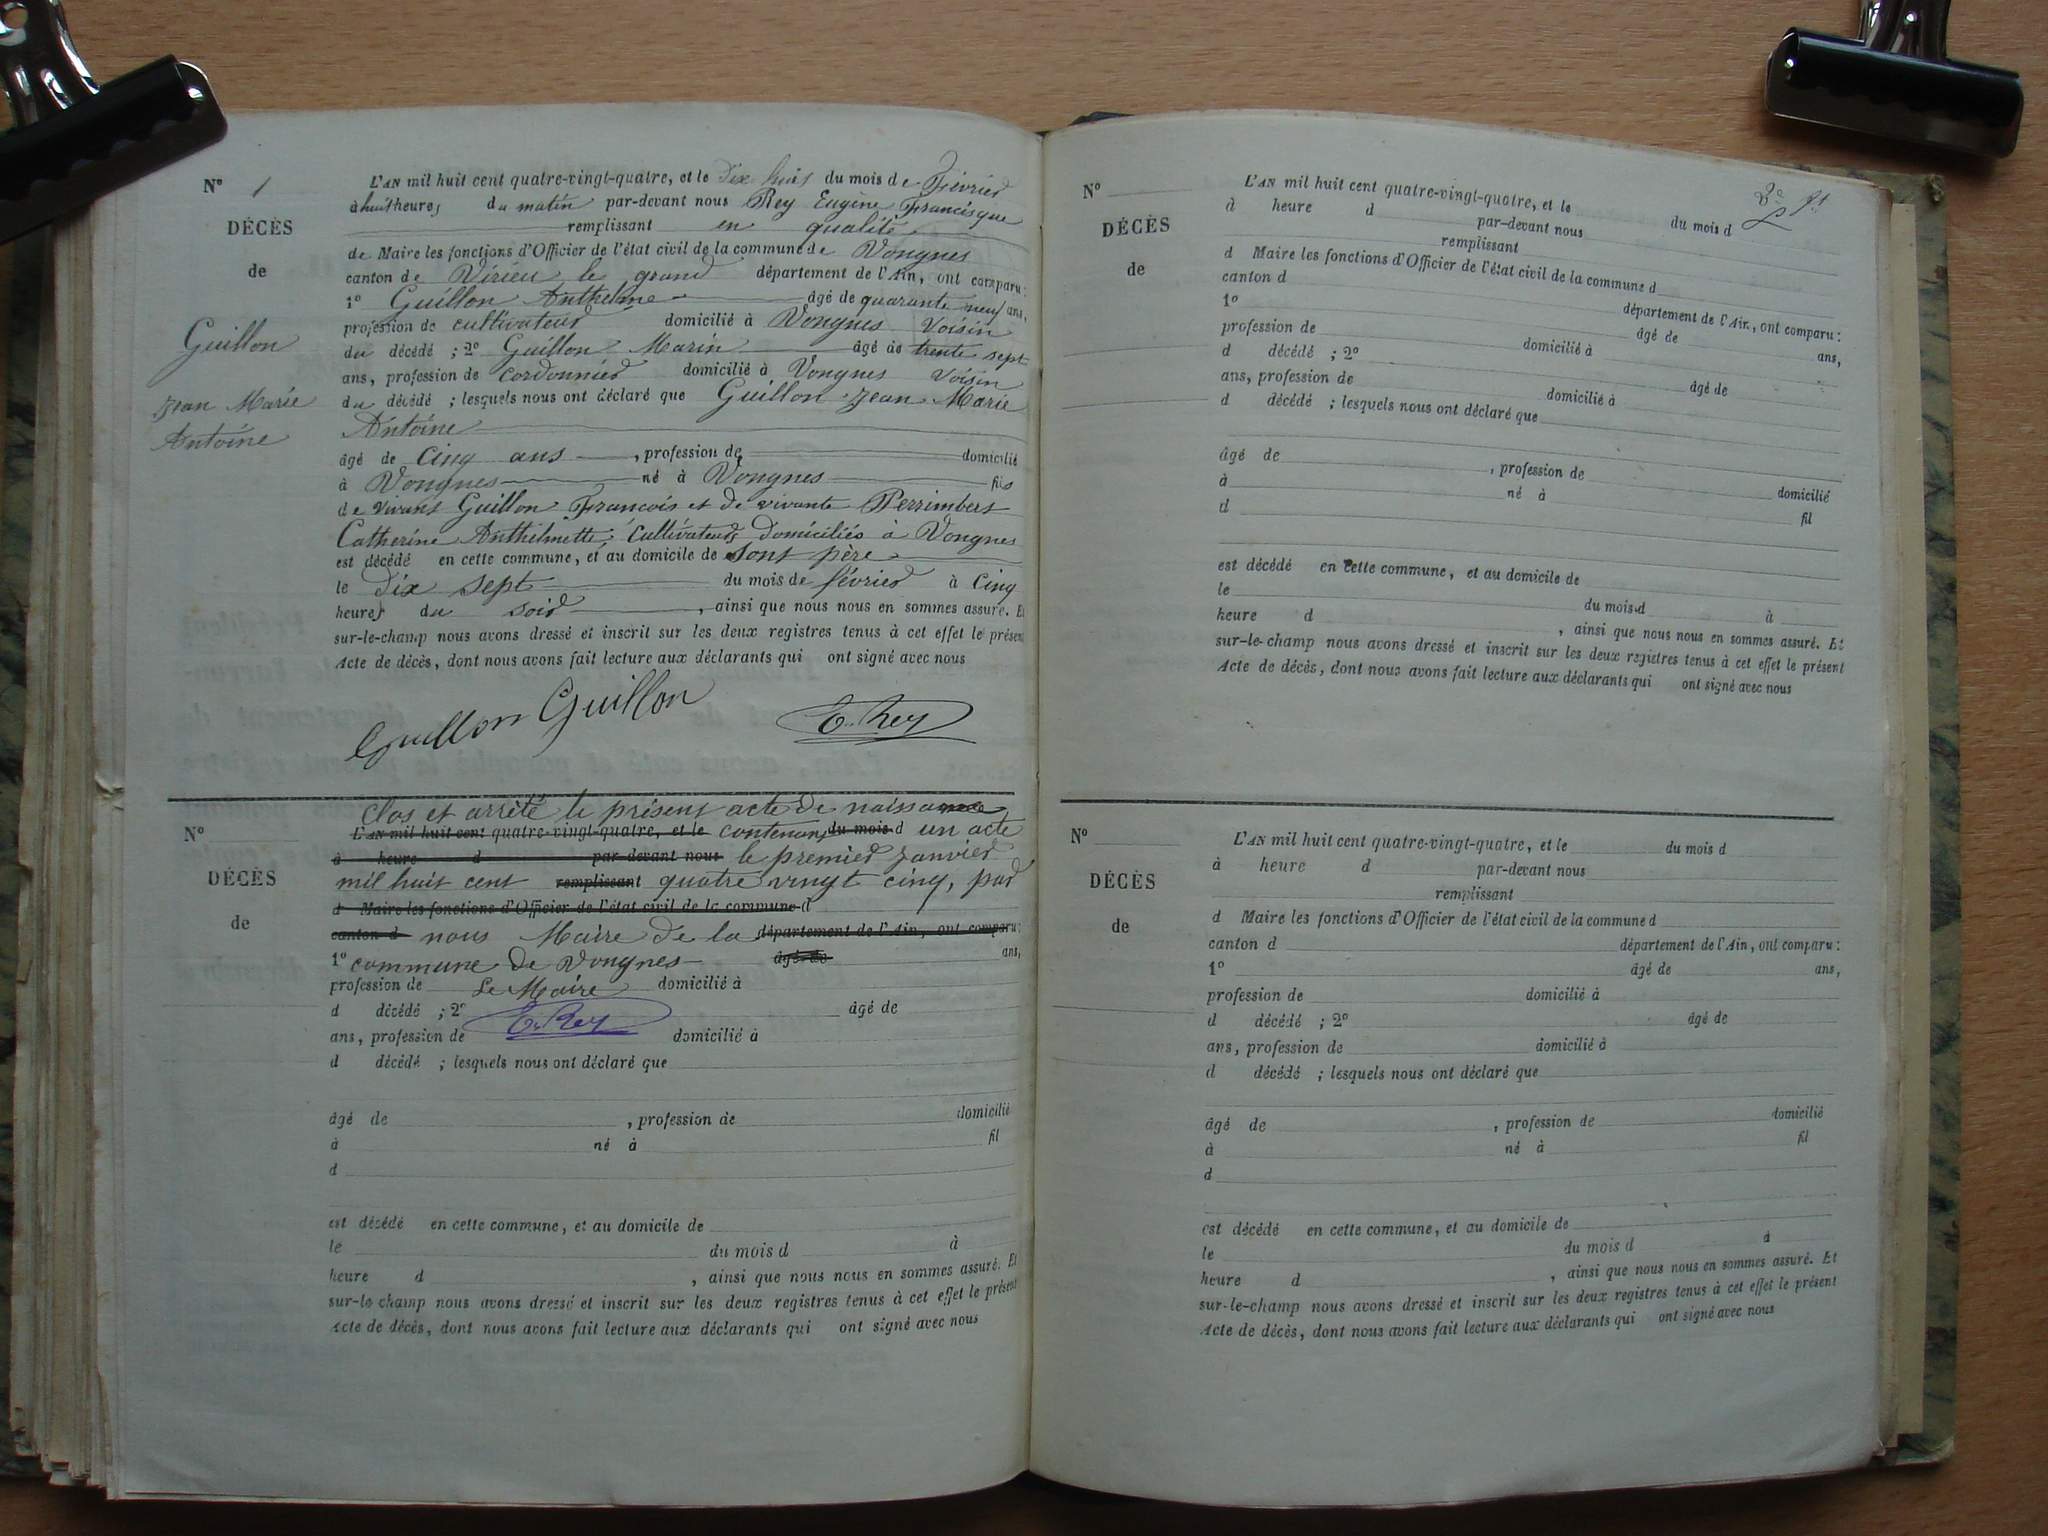 N° 1
DÉCÈS
de
Guillon
Jean Marie
Antoine
L'AN mil huit cent quatre-vingt-quatre, et le Dix huit du mois de Février
à huit heures du matin par-devant nous Rey Eugène Francisque
remplissant en qualité
de Maire les fonctions d'Officier de l'état civil de la commune de Vongnes
canton de Virieu le grand département de l'Ain, ont comparu :
1° Guillon Anthelme âgé de quarante neuf ans,
profession de cultivateur domicilié à Vongnes voisin
du décédé ; 2° Guillon Marin âgé de trente sept
ans, profession de cordonnier domicilié à Vongnes voisin
du décédé ; lesquels nous ont déclaré que Guillon Jean Marie
Antoine
âgé de cinq ans , profession de domicilié
à Vongnes né à Vongnes fils
de vivant Guillon François et de vivante Perrimbert
Catherine Anthelmette, Cultivateurs domiciliés à Vongnes
est décédé en cette commune, et au domicile de sont père
le dix sept du mois de février à cinq
heures du soir , ainsi que nous nous en sommes assuré. Et
sur-le-champ nous avons dressé et inscrit sur les deux registres tenus à cet effet le présent
Acte de décès, dont nous avons fait lecture aux déclarants qui ont signé avec nous
Guillon Guillon E. Rey
N°
DÉCÈS
de
clos et arrêté le présent acte de naissance
L'AN mil huit cent quatre-vingt-quatre, et le contenant du mois d un acte
à heure d par-devant nous le premier Janvier
mil huit cent remplissant quatre vingt cinq, par
d Maire les fonctions d'Officier de l'état civil de la commune d
canton d nous Maire de la département de l'Ain, ont comparu :
1° commune de Vongnes âgé de ans,
profession de Le Maire domicilié à
d décédé ; 2° E. Rey âgé de
ans, profession de domicilié à
d décédé ; lesquels nous ont déclaré que
âgé de , profession de domicilié
à né à fil
d
est décédé en cette commune, et au domicile de
le du mois d à
heure d , ainsi que nous nous en sommes assuré. Et
sur-le-champ nous avons dressé et inscrit sur les deux registres tenus à cet effet le présent
Acte de décès, dont nous avons fait lecture aux déclarants qui ont signé avec nous
N°
DÉCÈS
de
L'AN mil huit cent quatre-vingt-quatre, et le du mois d
à heure d par-devant nous
remplissant
d Maire les fonctions d'Officier de l'état civil de la commune d
canton d département de l'Ain, ont comparu :
1° âgé de ans,
profession de domicilié à
d décédé ; 2° âgé de
ans, profession de domicilié à
d décédé ; lesquels nous ont déclaré que
âgé de , profession de domicilié
à né à
d fil
est décédé en cette commune, et au domicile de
le du mois d à
heure d , ainsi que nous nous en sommes assuré. Et
sur-le-champ nous avons dressé et inscrit sur les deux registres tenus à cet effet le présent
Acte de décès, dont nous avons fait lecture aux déclarants qui ont signé avec nous
N°
DÉCÈS
de
L'AN mil huit cent quatre-vingt-quatre, et le du mois d
à heure d par-devant nous
remplissant
d Maire les fonctions d'Officier de l'état civil de la commune d
canton d département de l'Ain, ont comparu :
1° âgé de ans,
profession de domicilié à
d décédé ; 2° âgé de
ans, profession de domicilié à
d décédé ; lesquels nous ont déclaré que
âgé de , profession de domicilié
à né à fil
d
est décédé en cette commune, et au domicile de
le du mois d à
heure d , ainsi que nous nous en sommes assuré. Et
sur-le-champ nous avons dressé et inscrit sur les deux registres tenus à cet effet le présent
Acte de décès, dont nous avons fait lecture aux déclarants qui ont signé avec nous